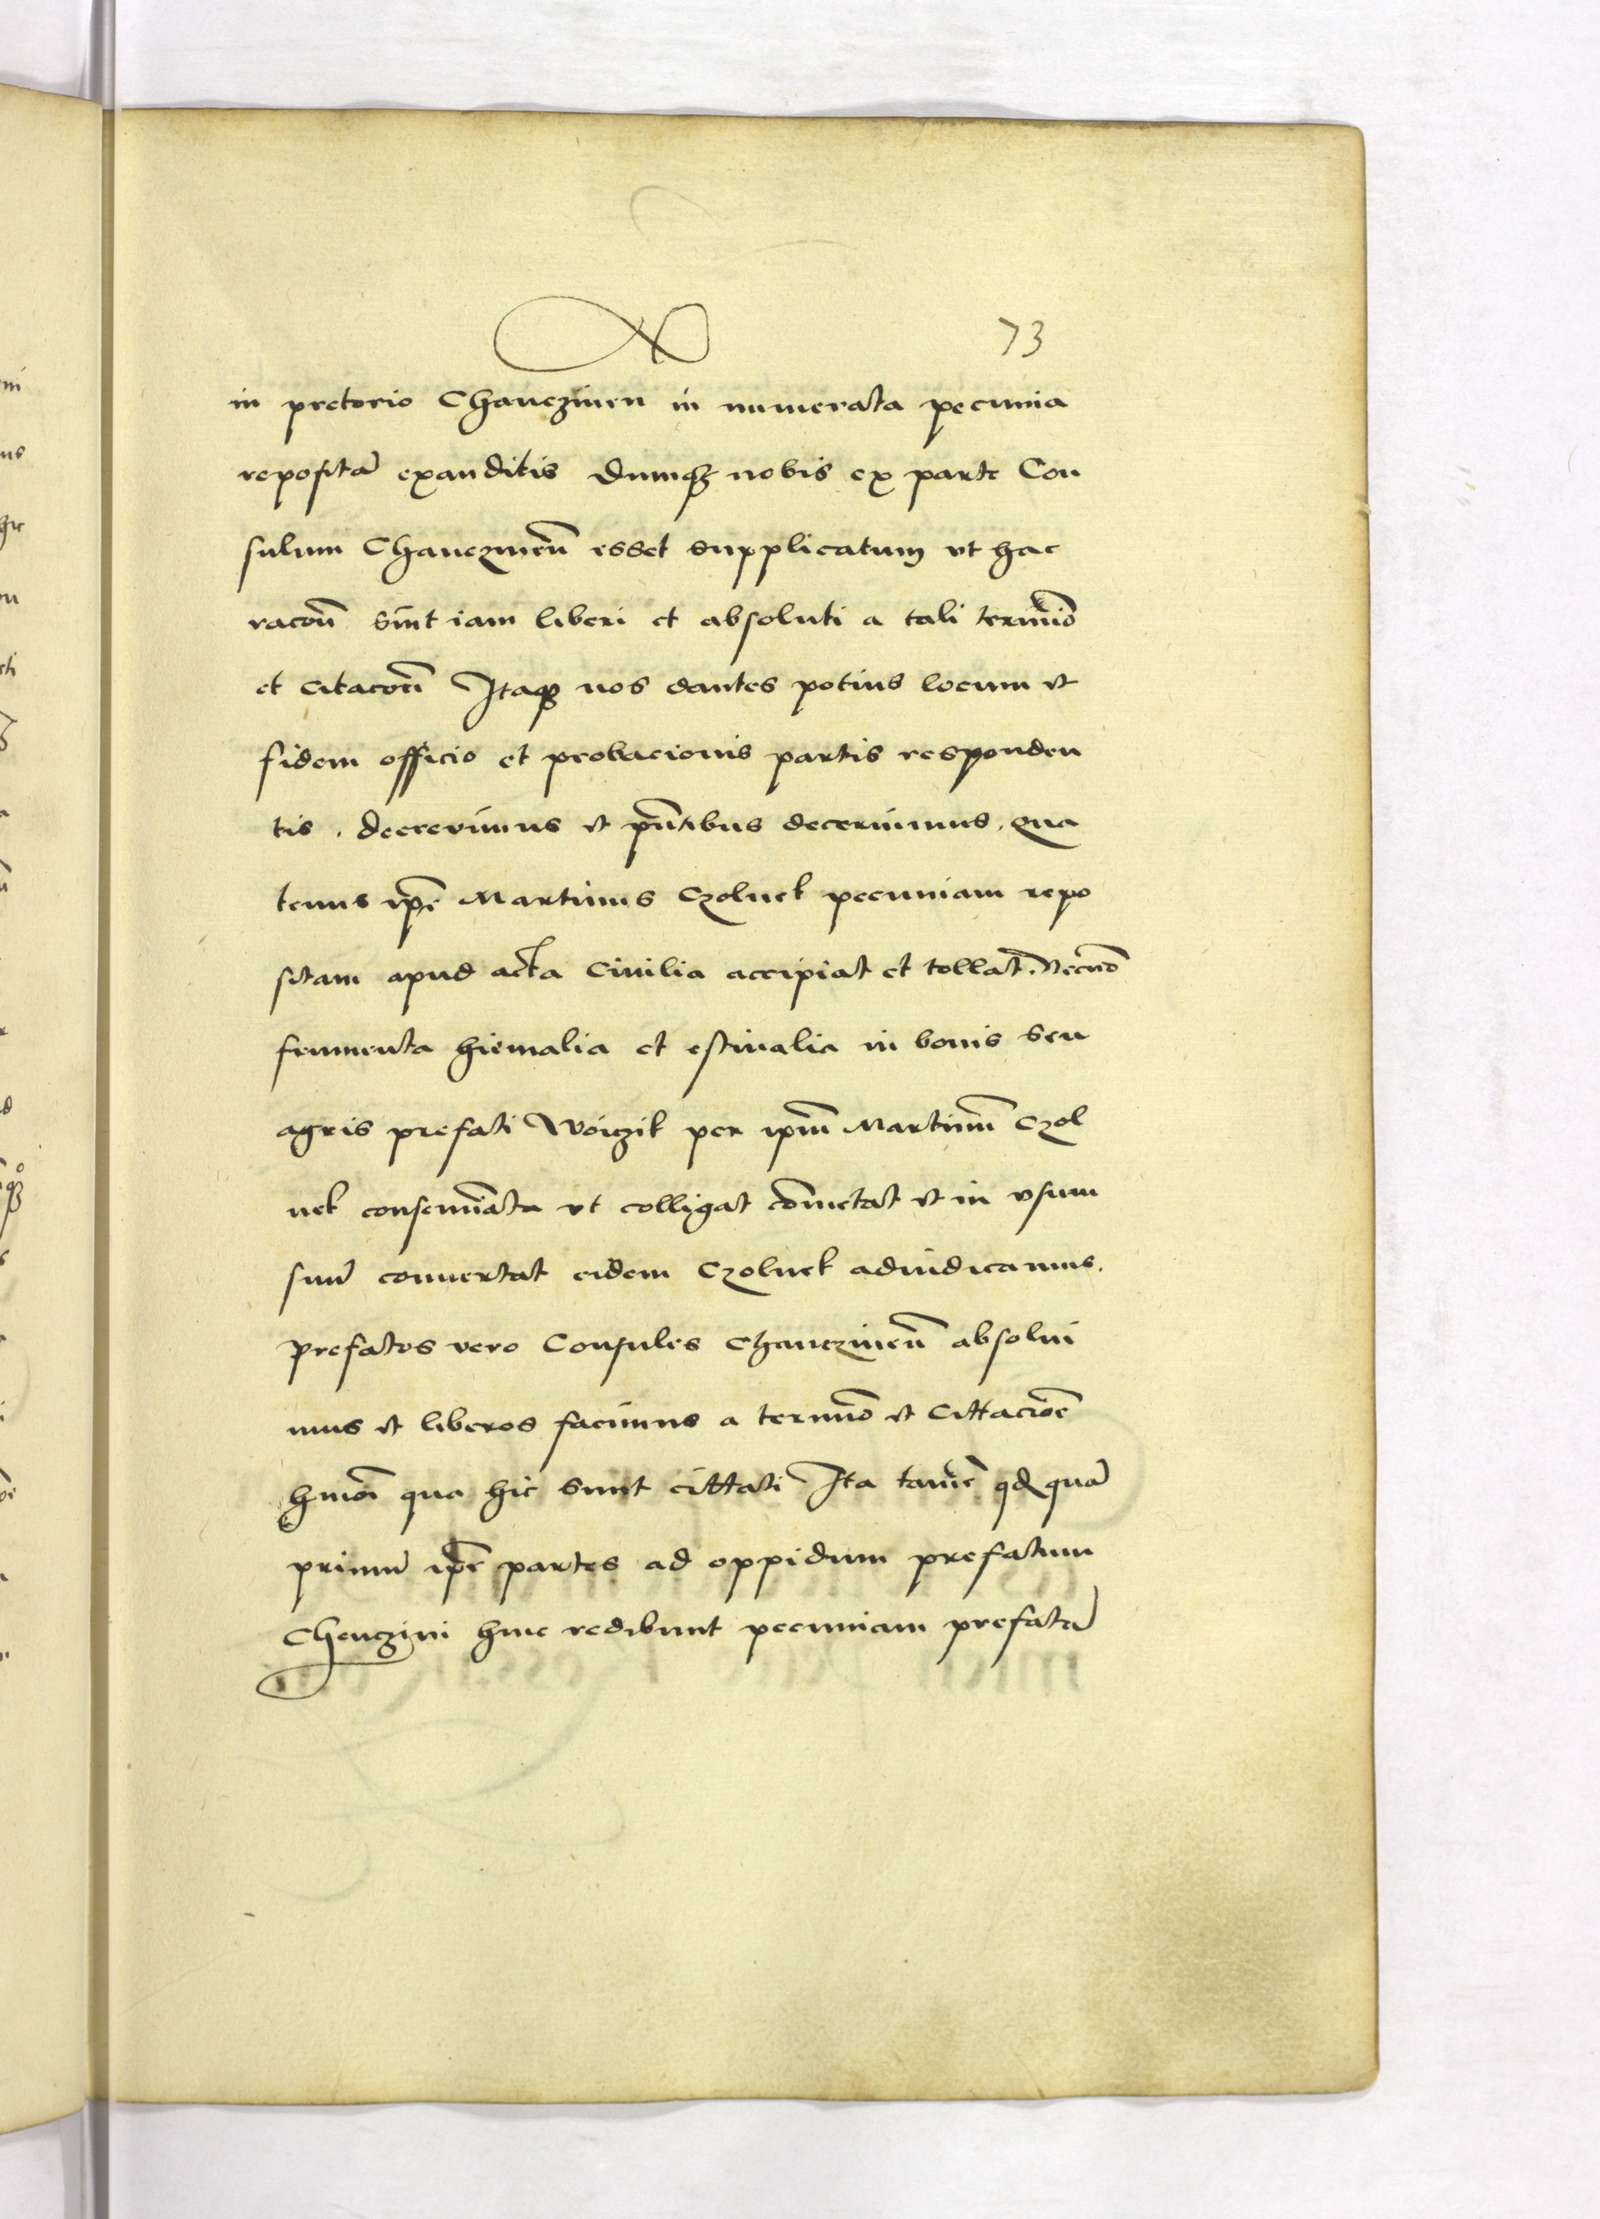 73
in pretorio Chanczinen in numerata pecunia
repositā exauditis Dumqȝ nobis ex parte Con
sulum Chanczineñ esset supplicatum vt hac
racoñ sint iam liberi et absoluti a tali termīo
et citacoñ Itaqȝ nos dantes potius locum et
fidem officio et probacionis partis responden
tis . decrevimus et pñtibus decernimus . qua
tenus ip̃e Martinus Czoluek pecuniam repo
sitam apud acta Ciuilia accipiat et tollat . Necnō
frumenta hiemalia et estiualia in bonis seu
agris prefati Woiczik per ip̃m Martinū Czol
uek conseminata vt colligat demetat et in vsum
suū conuertat eidem Czoluek adiudicamus .
prefatos vero Consules Chanczineñ absolui
mus et liberos facimus a termīo et Cittacioē
hmōi qua hic sunt cittati Ita tamē qđ quā
primū ip̃e partes ad oppidum prefatum
Chenczini hinc redibunt pecuniam prefatā